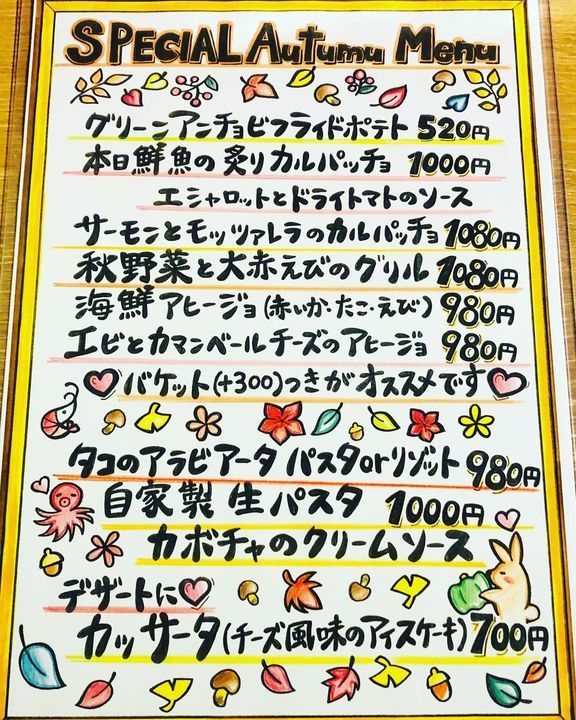 SPECIAL Autumu Menu
グリーンアンチョビフライドポテト 520円
本日鮮魚の炙りカルパッチョ 1000円
エシャロットとドライトマトのソース
サーモンとモッツァレラのカルパッチョ 1080円
秋野菜と大赤えびのグリル 1080円
海鮮アヒージョ(赤いか・たこ・えび) 980円
エビとカマンベールチーズのアヒージョ 980円
バケット(+300)つきがオススメです
タコのアラビアータ パスタorリゾット 980円
自家製 生パスタ 1000円
カボチャのクリームソース
デザートに
カッサータ(チーズ風味のアイスケーキ) 700円